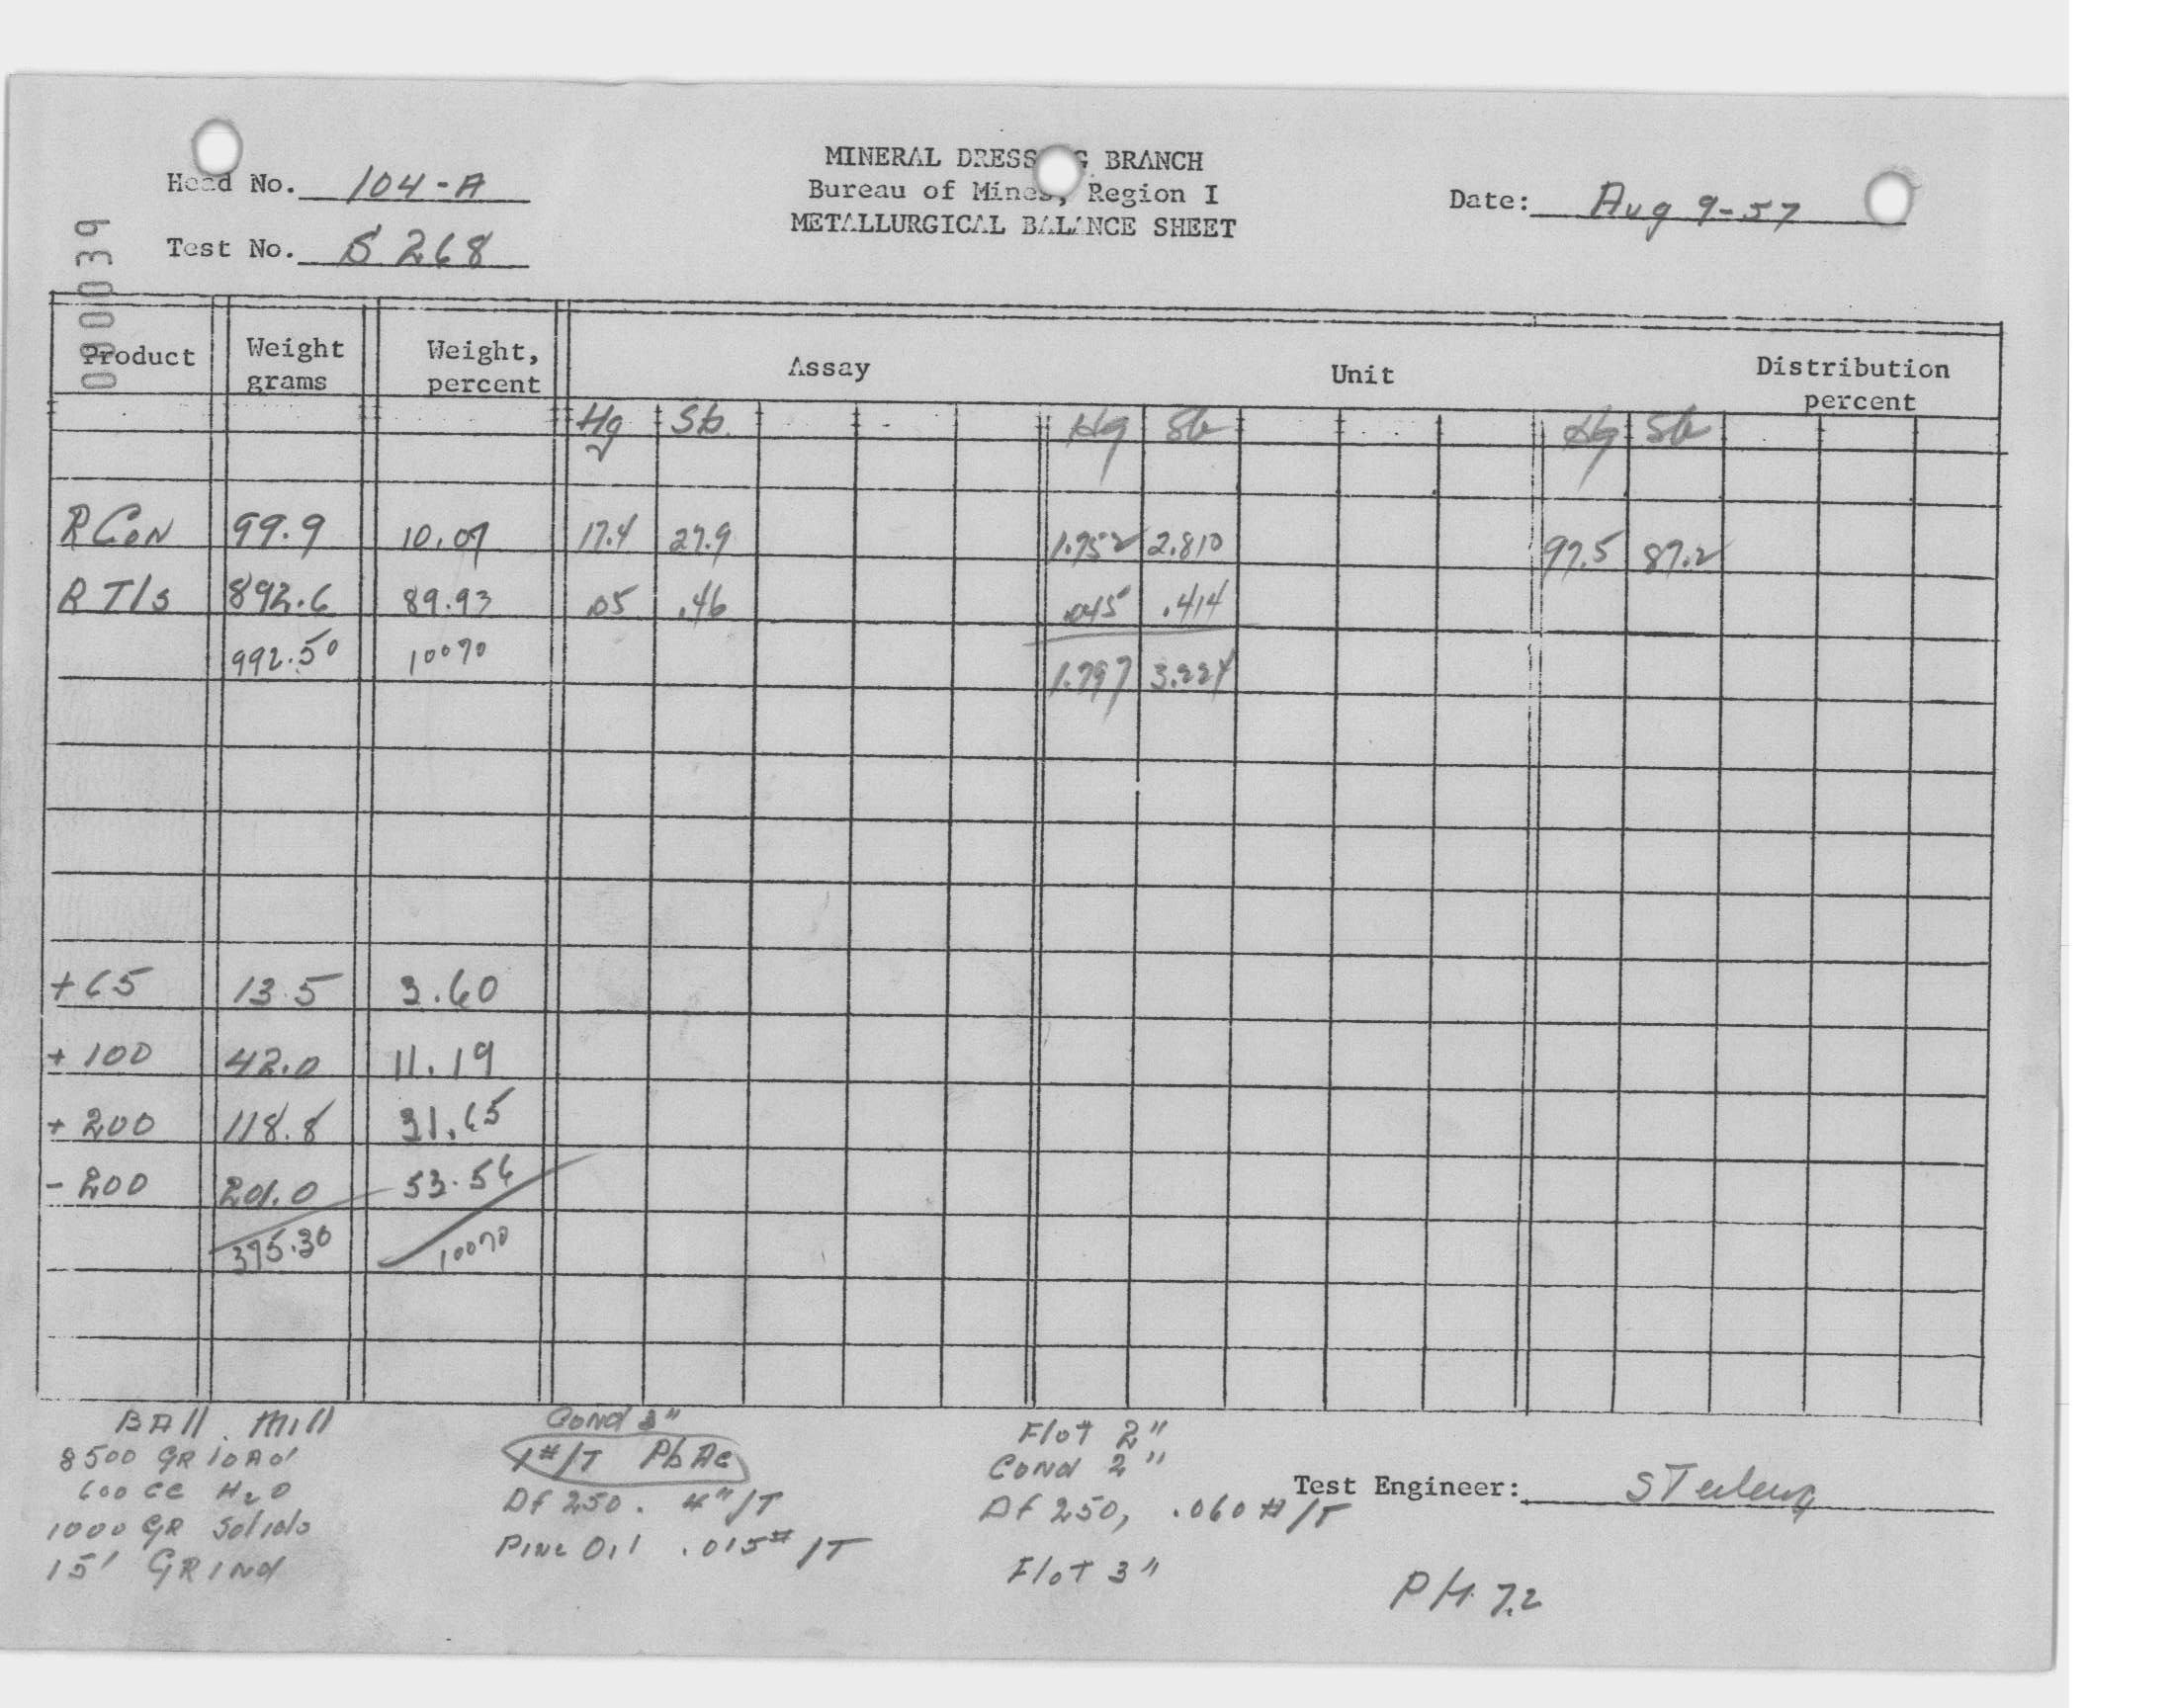 MINERAL DRESS G BRANCH
Head No. 104-A
Bureau of Mines, Region I
Date: Aug 9-57
METALLURGICAL BALANCE SHEET
Test No. S 268
090039
Product Weight grams Weight, percent Assay Unit Distribution percent
Hg Sb Hg Sb Hg Sb
R CoN 99.9 10.07 17.4 27.9 1.752 2.810 97.5 87.2
R Tls 892.6 89.93 .05 .46 .045 .414
992.50 100% 1.797 3.224
+65 13.5 3.60
+100 42.0 11.19
+200 118.8 31.65
-200 201.0 53.56
375.30 100%
BAll Mill
8500 GR lOAd
600 cc H2O
1000 GR Solids
15' GRINd
Cond 3"
1#/T PbAc
Df 250. 4"/T
Pine Oil .015#/T
Flot 2"
Cond 2"
Df 250, .060 #/T
Flot 3"
Test Engineer:
PH 7.2